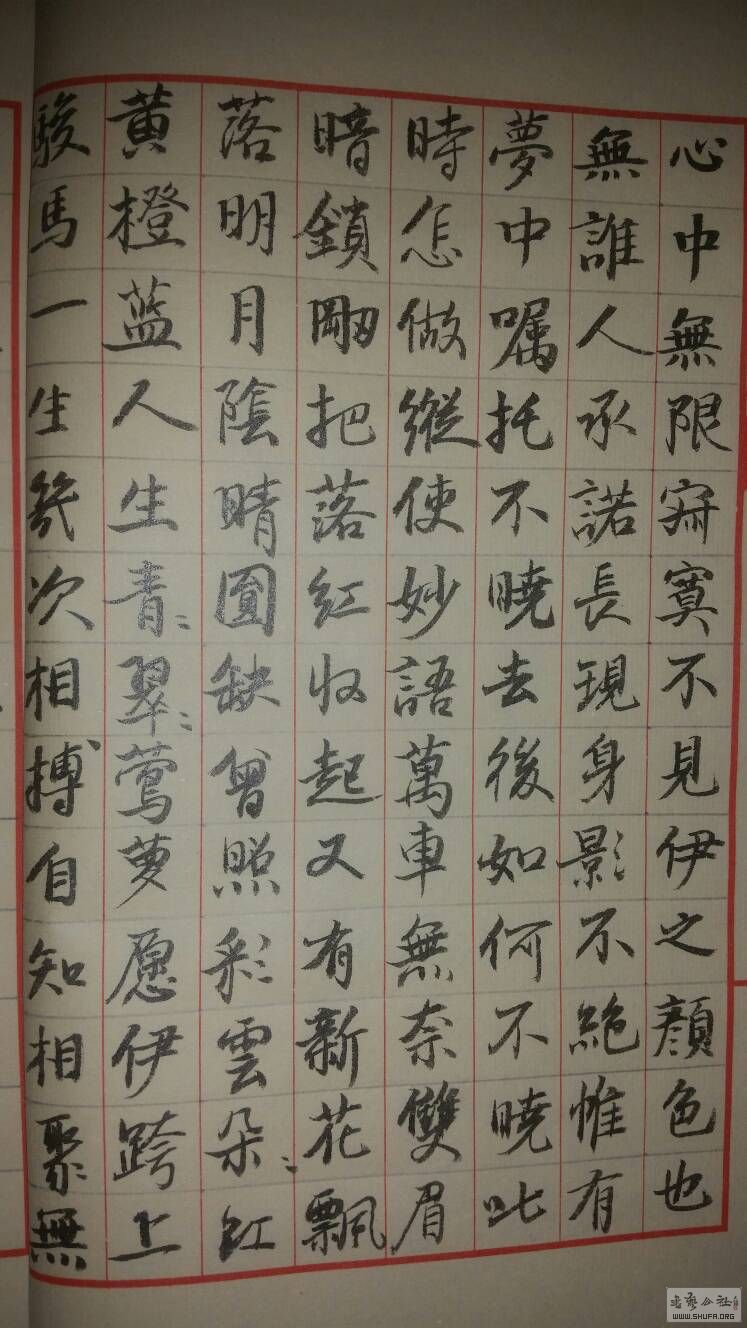 心中無限寂寞不見伊之顏色也
無誰人承諾長現身影不絕惟有
夢中嘱托不曉去後如何不曉此
時怎做縱使妙語萬車無奈雙眉
暗鎖剛把落紅收起又有新花飄
落明月陰晴圓缺曾照彩雲朵〻紅
黃橙蓝人生青〻翠〻莺萝愿伊跨上
駿馬一生幾次相搏自知相聚無
WWW.SHUFA.ORG